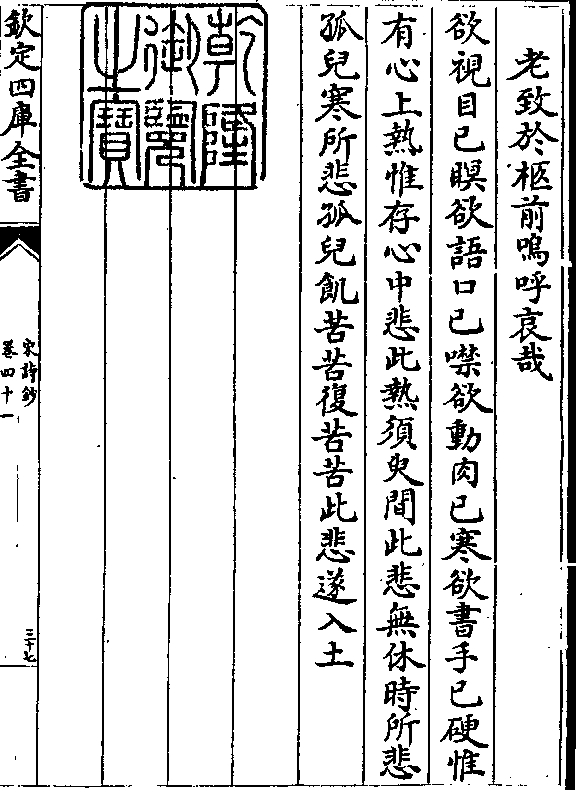 老致於柩前嗚呼哀哉
欲視目已瞑欲語口已噤欲動肉已寒欲書手已硬惟
有心上熱惟存心中悲此熱須臾間此悲無休時所悲
孤兒寒所悲孤兒飢苦苦復苦苦此悲遂入土
乾隆御覽之寶
欽定四庫全書
宋詩鈔
卷四十一
三十七